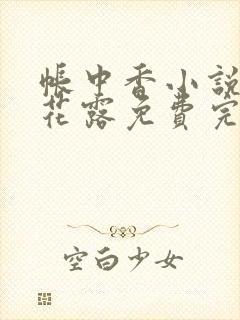 帳中香小說
花露免費完
空白少女